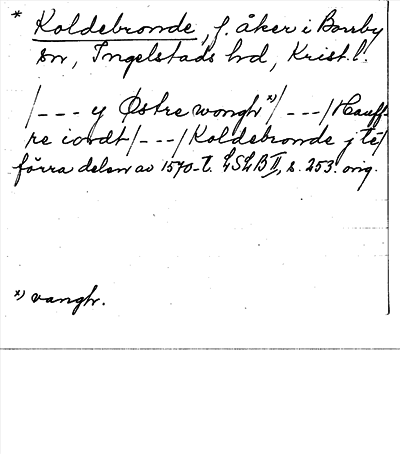 * Koldebronde, f. åker i Borrby
sn, Ingelstads hd, Krist. l.
/---y Østre wongh *)/---/Hauff-
re iordt/---/Koldebronde j tē/
förra delen av 1570-t. LSLB II, s. 253. orig.
*) vangh.